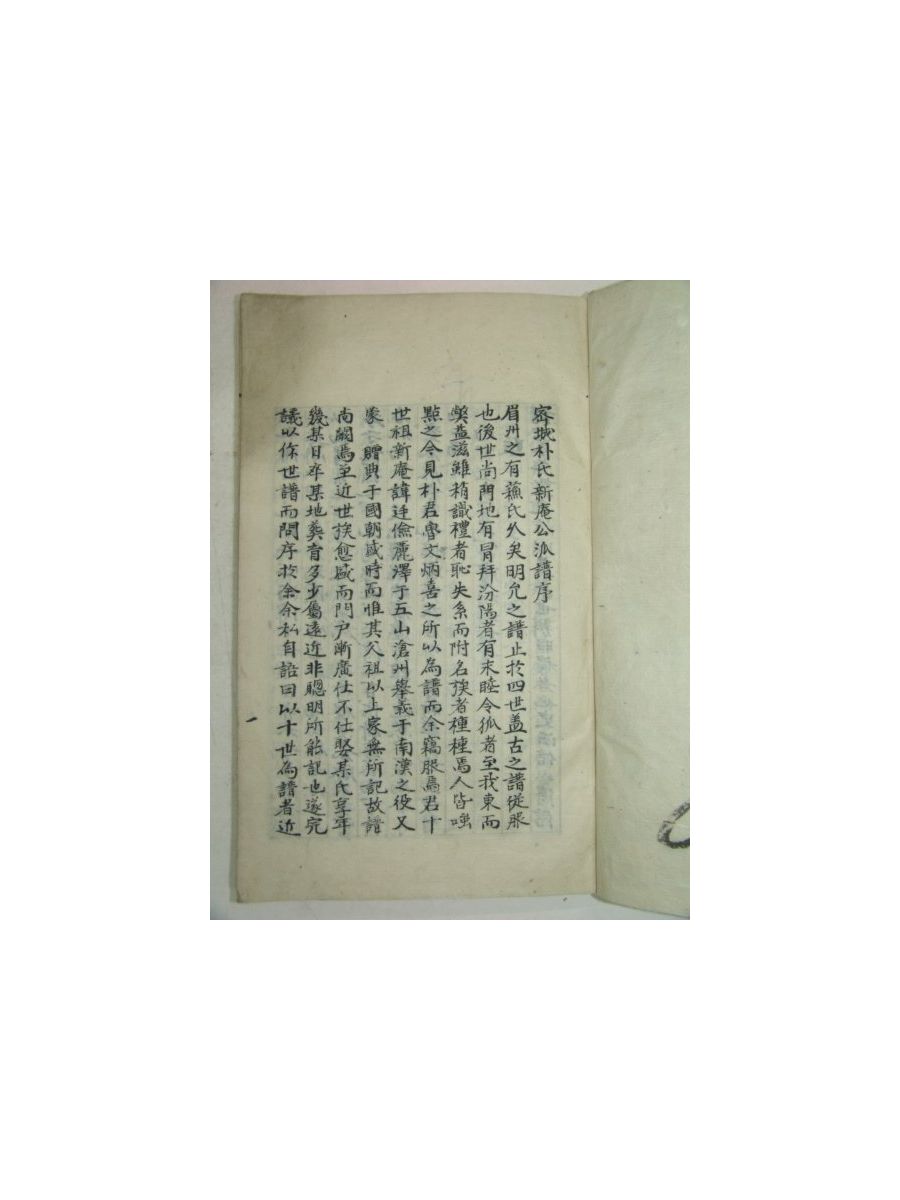 密城朴氏新庵公派譜序
眉州之有蘓氏久矣明允之譜止於四世盖古之譜從服
也後世尚門地有冒拜汾陽者有末睦令狐者至我東而
獘益滋雖稍識禮者恥失系而附名族者種種焉人皆嗤
點之今見朴君魯文炳喜之所以為譜而余竊服焉君十
世祖新庵諱廷儉麗澤于五山滄州擧義于南漢之役又
蒙贈典于國朝盛時而惟其父祖以上家無所記故譜
尚闕焉至近世族愈盛而門戶漸廣仕不仕娶某氏享年
幾某日卒某地葬育多少屬遠近非聰明所能記也遂完
議以作世譜而問序於余余私自語曰以十世為譜者近